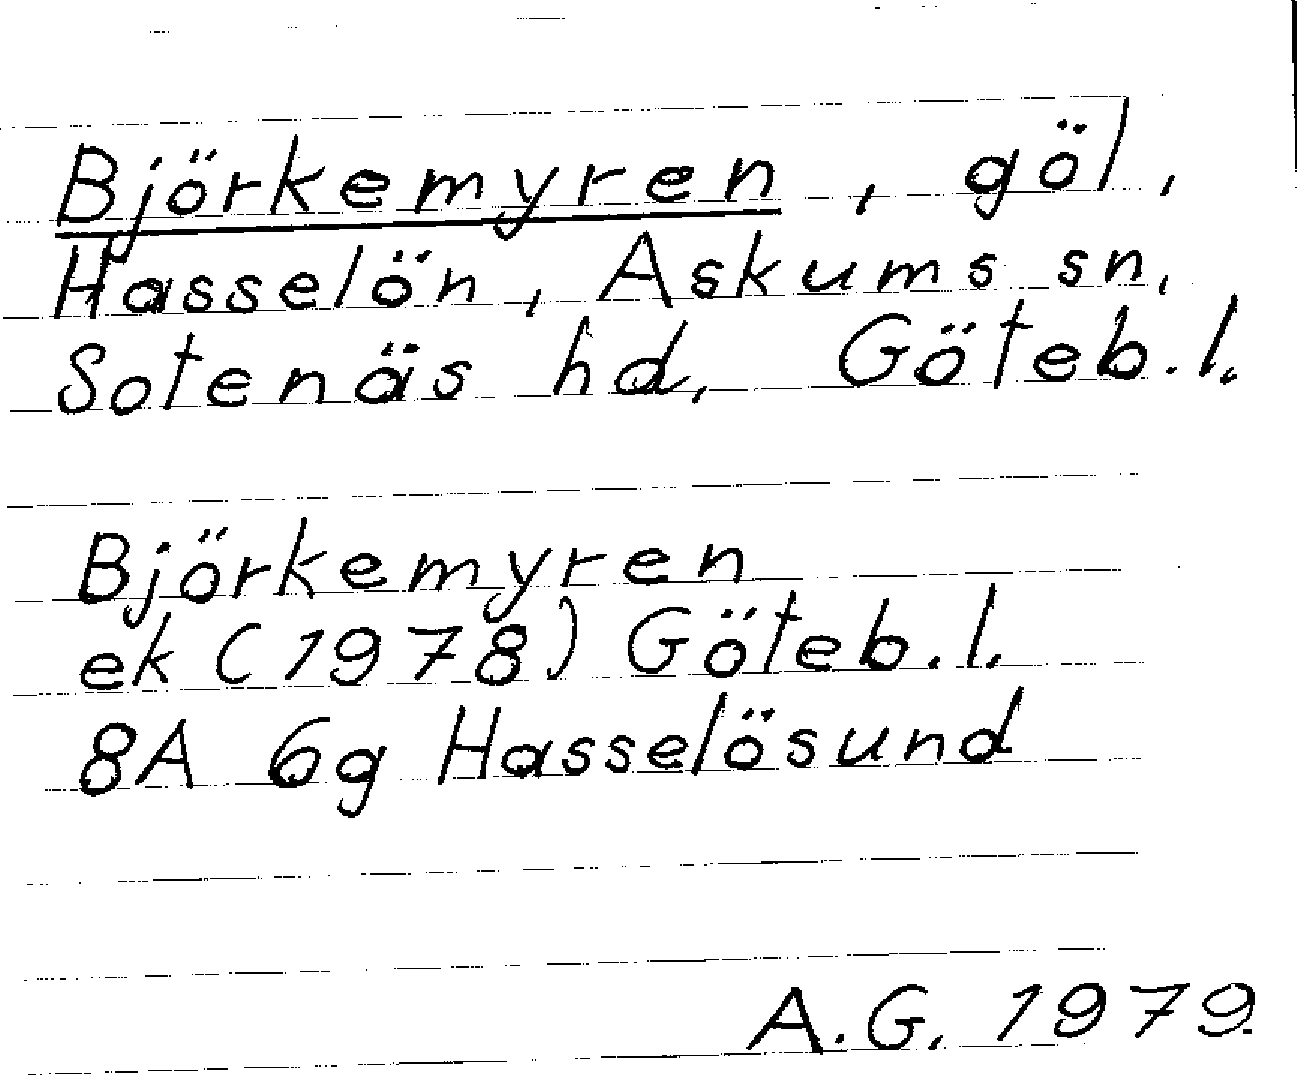 Björkemyren, göl,
Hasselön, Askums sn,
Sotenäs hd, Göteb.l.
Björkemyren
ek (1978) Göteb.l.
8A 6g Hasselösund
A.G. 1979.